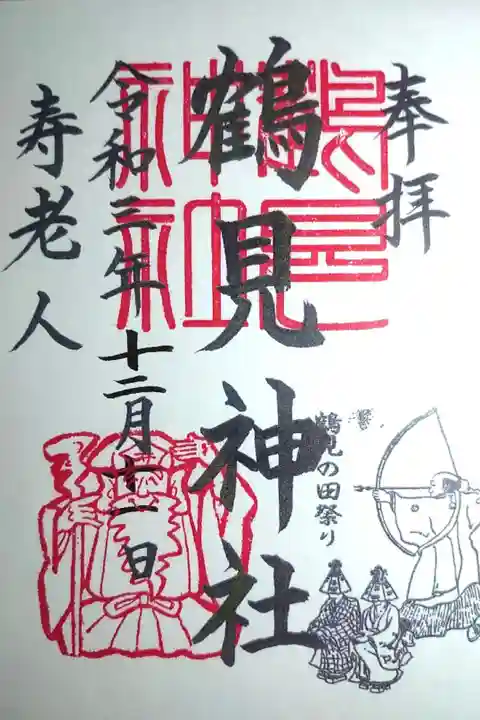 奉拝
鶴見神社
鶴見の田祭り
令和三年十二月十一日
寿老人